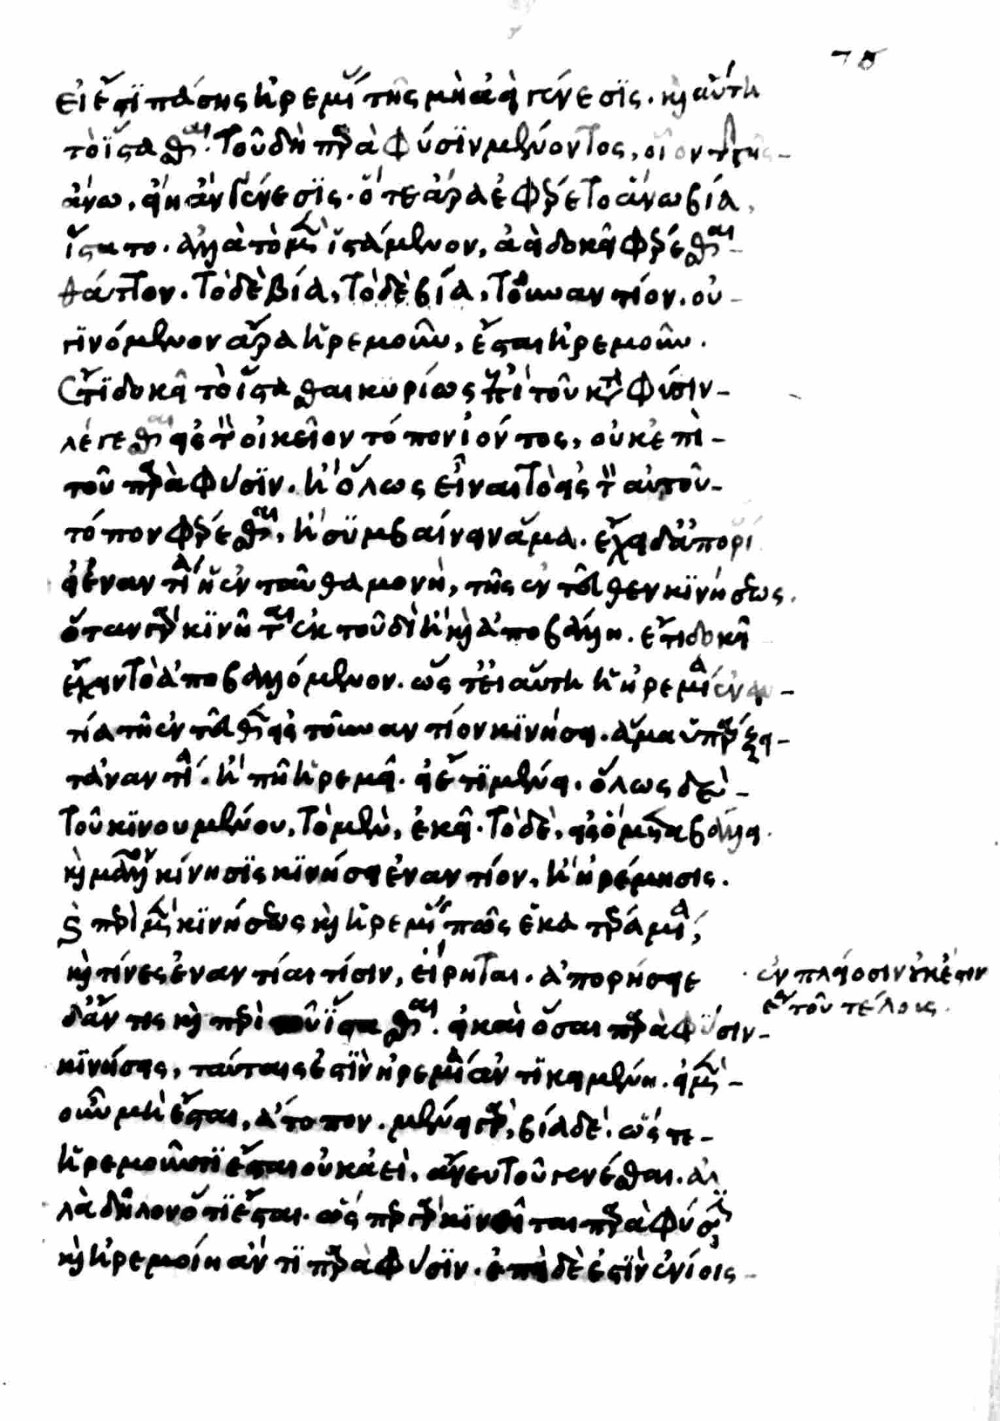 78
εἰ ἔστι πάσης ἠρεμίας τῆς μὴ ἀεὶ γένεσις. καὶ αὕτη
τὸ ἵστασθαι. τοῦ δὴ παρὰ φύσιν μένοντος, οἷον τῆς
ἄνω, εἴη ἂν γένεσις. ὅτε ἄρα ἐφέρετο ἄνω βίᾳ,
ἵστατο. ἀλλὰ τὸ μὲν ἱστάμενον, ἀεὶ δοκεῖ φέρεσθαι
θᾶττον. τὸ δὲ βίᾳ, τὸ δὲ βίᾳ, τοὐναντίον. οὐ
γινόμενον ἄρα ἠρεμοῦν, ἔσται ἠρεμοῦν.
ἔτι δοκεῖ τὸ ἵστασθαι κυρίως ἐπὶ τοῦ κατὰ φύσιν
λέγεσθαι εἰς τὸν οἰκεῖον τόπον ἰόντος, οὐκ ἐπὶ
τοῦ παρὰ φύσιν. ἢ ὅλως εἶναι τὸ εἰς τὸν αὑτοῦ
τόπον φέρεσθαι, ἢ συμβαίνειν ἅμα. ἔχει δ' ἀπορί
εἰ ἐναντία ἡ ἐνταῦθα μονὴ, τῆς ἐντεῦθεν κινήσεως.
ὅταν γὰρ κινῆται ἐκ τουδὶ ἢ καὶ ἀποβάλλῃ. ἔτι δοκεῖ
ἔχειν τὸ ἀποβαλλόμενον. ὥστ' εἰ αὕτη ἡ ἠρεμία ἐναν
τία τῇ ἐντεῦθεν εἰς τοὐναντίον κινήσει. ἅμα ὑπάρξει
τἀναντία. ἢ πῇ ἠρεμεῖ. εἰ ἔτι μένει. ὅλως δὲ
τοῦ κινουμένου, τὸ μὲν, ἐκεῖ. τὸ δὲ, εἰς ὃ μεταβάλλει.
καὶ μᾶλλον κίνησις κινήσει ἐναντίον, ἢ ἠρέμησις.
περὶ μὲν κινήσεως καὶ ἠρεμίας πῶς ἑκατέρα μία,
καὶ τίνες ἐναντίαι τίσιν, εἴρηται. ἀπορήσειε
δ' ἄν τις καὶ περὶ τοῦ ἵστασθαι. εἰ καὶ ὅσαι παρὰ φύσιν
κινήσεις, ταύταις ἐστὶν ἠρεμία ἀντικειμένη. εἰ μὲν
οὖν μὴ ἔσται, ἄτοπον. μένει γὰρ, βίᾳ δέ. ὥστε
ἠρεμοῦν τι ἔσται οὐκ ἀεὶ, ἄνευ τοῦ γενέσθαι. ἀλ
λὰ δῆλον ὅτι ἔσται. ὥσπερ γὰρ κινεῖται παρὰ φύσιν
καὶ ἠρεμοίη ἄν τι παρὰ φύσιν. ἐπεὶ δὲ ἐστὶν ἐνίοις
ἐν πλείοσιν οὐκ ἔστιν
ἕως τοῦ τέλους.